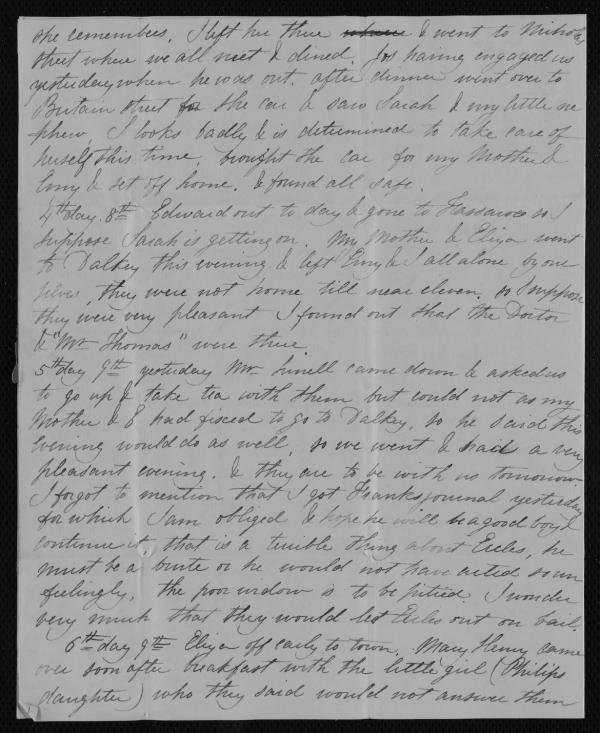 she remembers. I left her there where & went to Nicholas
street where we all met & dined. Jos having engaged us
yesterday when he was out. after dinner went over to
Britain street for the car & saw Sarah & my little ne
phew, S looks badly & is determined to take care of
herself this time, brought the car for my Mother &
Emy & set off home. & found all safe.
4th day. 8th Edward out to day & gone to Tassaroe so I
suppose Sarah is getting on. My Mother & Eliza went
to Dalkey this evening. & left Emy & I all alone by our
selves, they were not home till near eleven, so I suppose
they were very pleasant I found out that the Doctor
& "Mr Thomas" were there.
5th day 9th yesterday Mr. came down & asked us
to go up & take tea with them but could not as my
Mother & E had fixed to go to Dalkey, so he said this
evening would do as well, so we went & had a very
pleasant evening. & they are to be with us tomorrow.
I forgot to mention that I got Franks journal yesterday
for which I am obliged & hope he will be a good boy &
continue it, that is a terrible thing about Eccles, he
must be a brute or he would not have acted so un
feelingly, the poor widow is to be pitied. I wonder
very much that they would let Eccles out on bail.
6th day 9th Eliza off early to town. Mary Henry came
over soon after breakfast with the little girl (Philips
daughter) who they said would not answer them